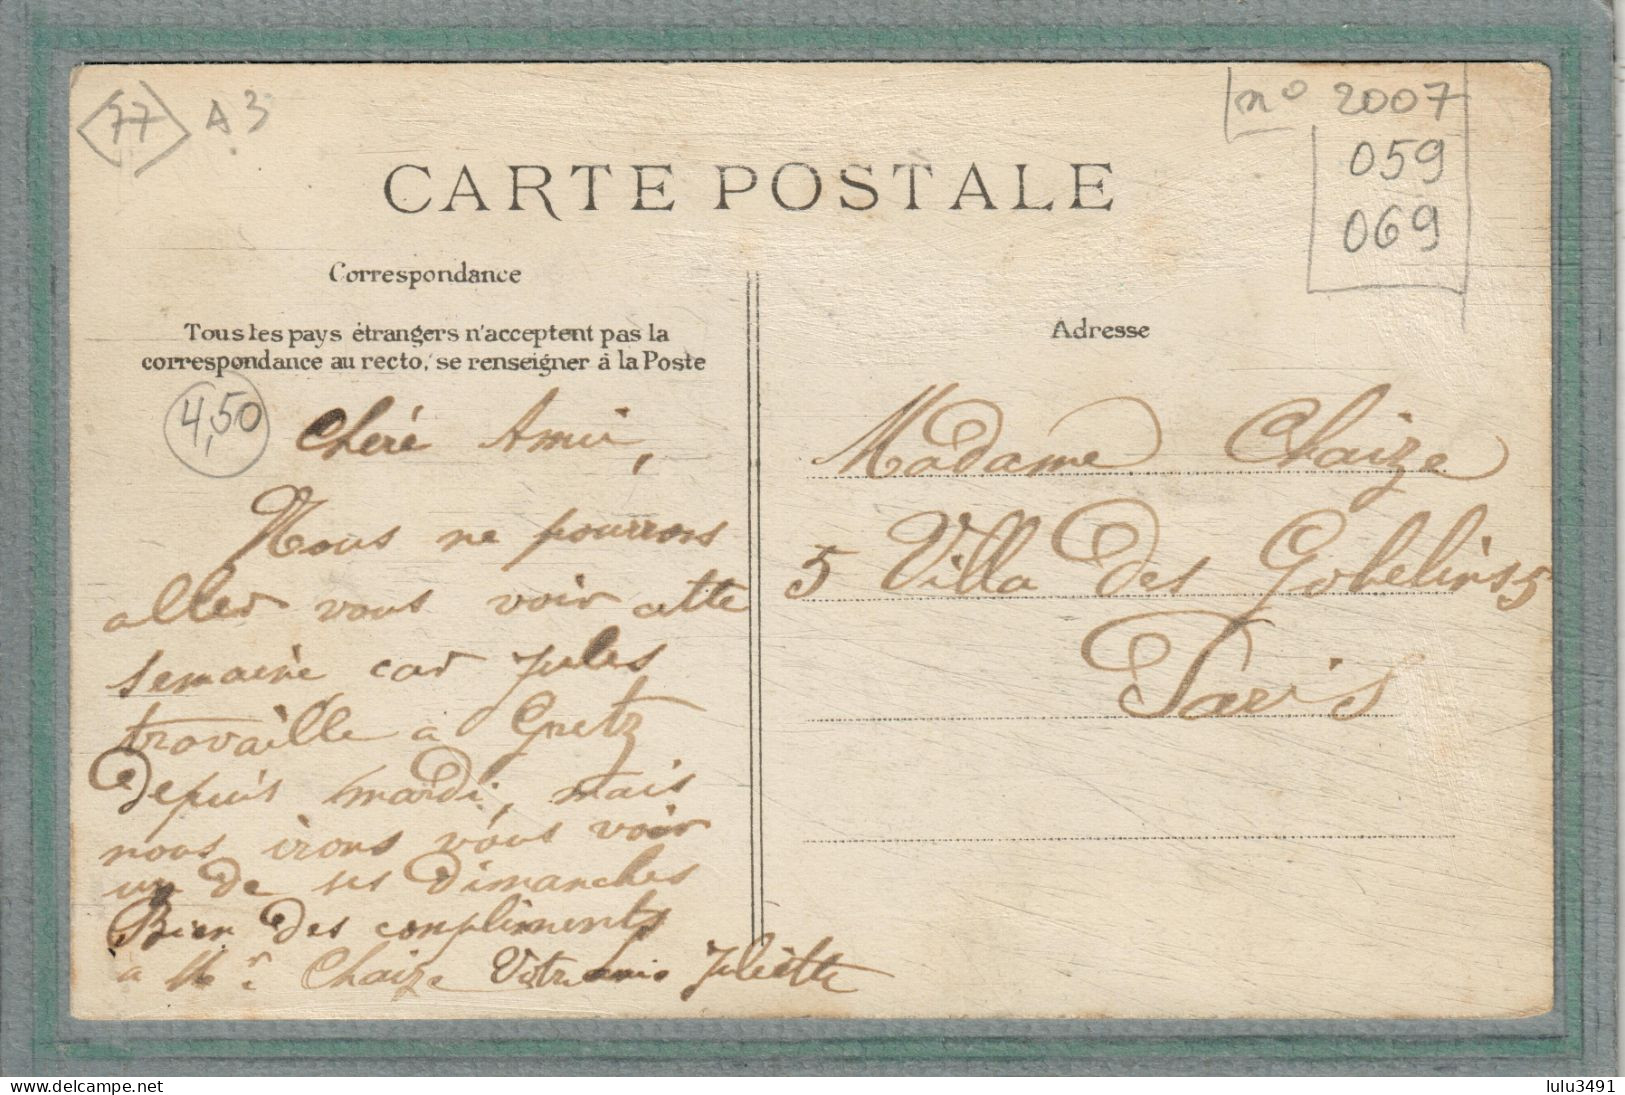 77 A3
n° 2007
059
069
CARTE POSTALE
Correspondance
Tous les pays étrangers n'acceptent pas la
correspondance au recto, se renseigner à la Poste
Adresse
4,50
Chère Amie,
Nous ne pourrons
aller vous voir cette
semaine car Jules
travaille a Gretz
depuis mardi, mais
nous irons vous voir
un de ses dimanches
Bien des compliments
a Mr Chaize Votre amie Juliette
Madame Chaize
5 Villa des Gobelins 5
Paris
lulu3491